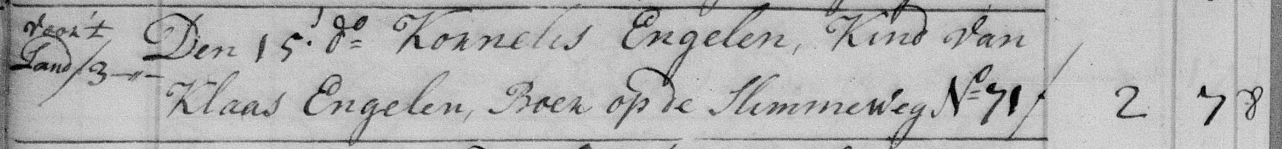 voor 't
Land / 3–"–
Den 15. do Kornelis Engelen, Kind van
Klaas Engelen, Boer op de Slimmeweg No 71 / 2 7 8